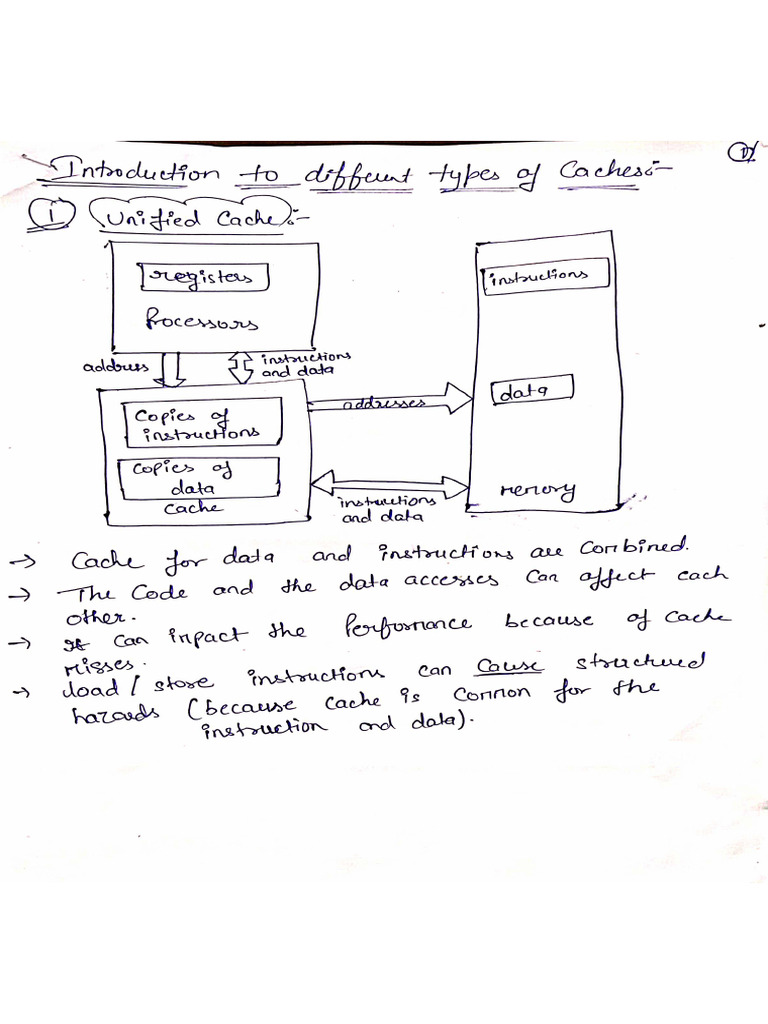 Introduction to different types of Caches:-
1
1 Unified Cache:-
registers
Processors
instructions
address
instructions
and data
Copies of
instructions
addresses
data
Copies of
data
cache
instructions
and data
memory
→ Cache for data and instructions are combined.
→ The Code and the data accesses can affect each
other.
→ It can impact the Performance because of cache
misses.
→ load / store instructions can Cause structured
hazards (because cache is common for the
instruction and data).